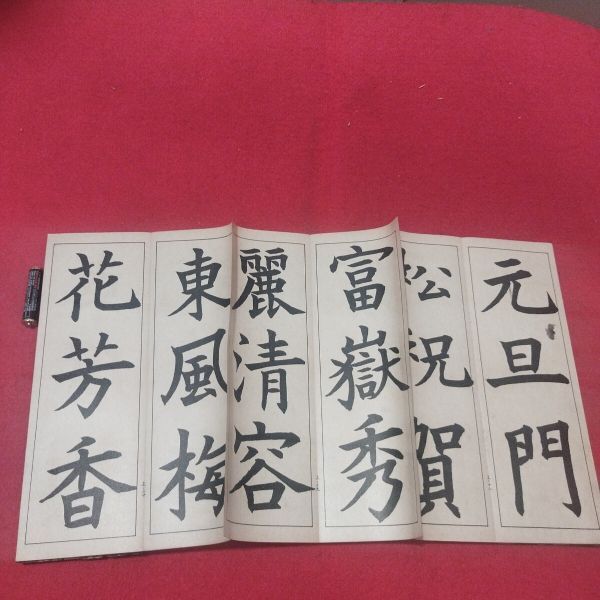 元旦門
松祝賀
富嶽秀
麗清容
東風梅
花芳香